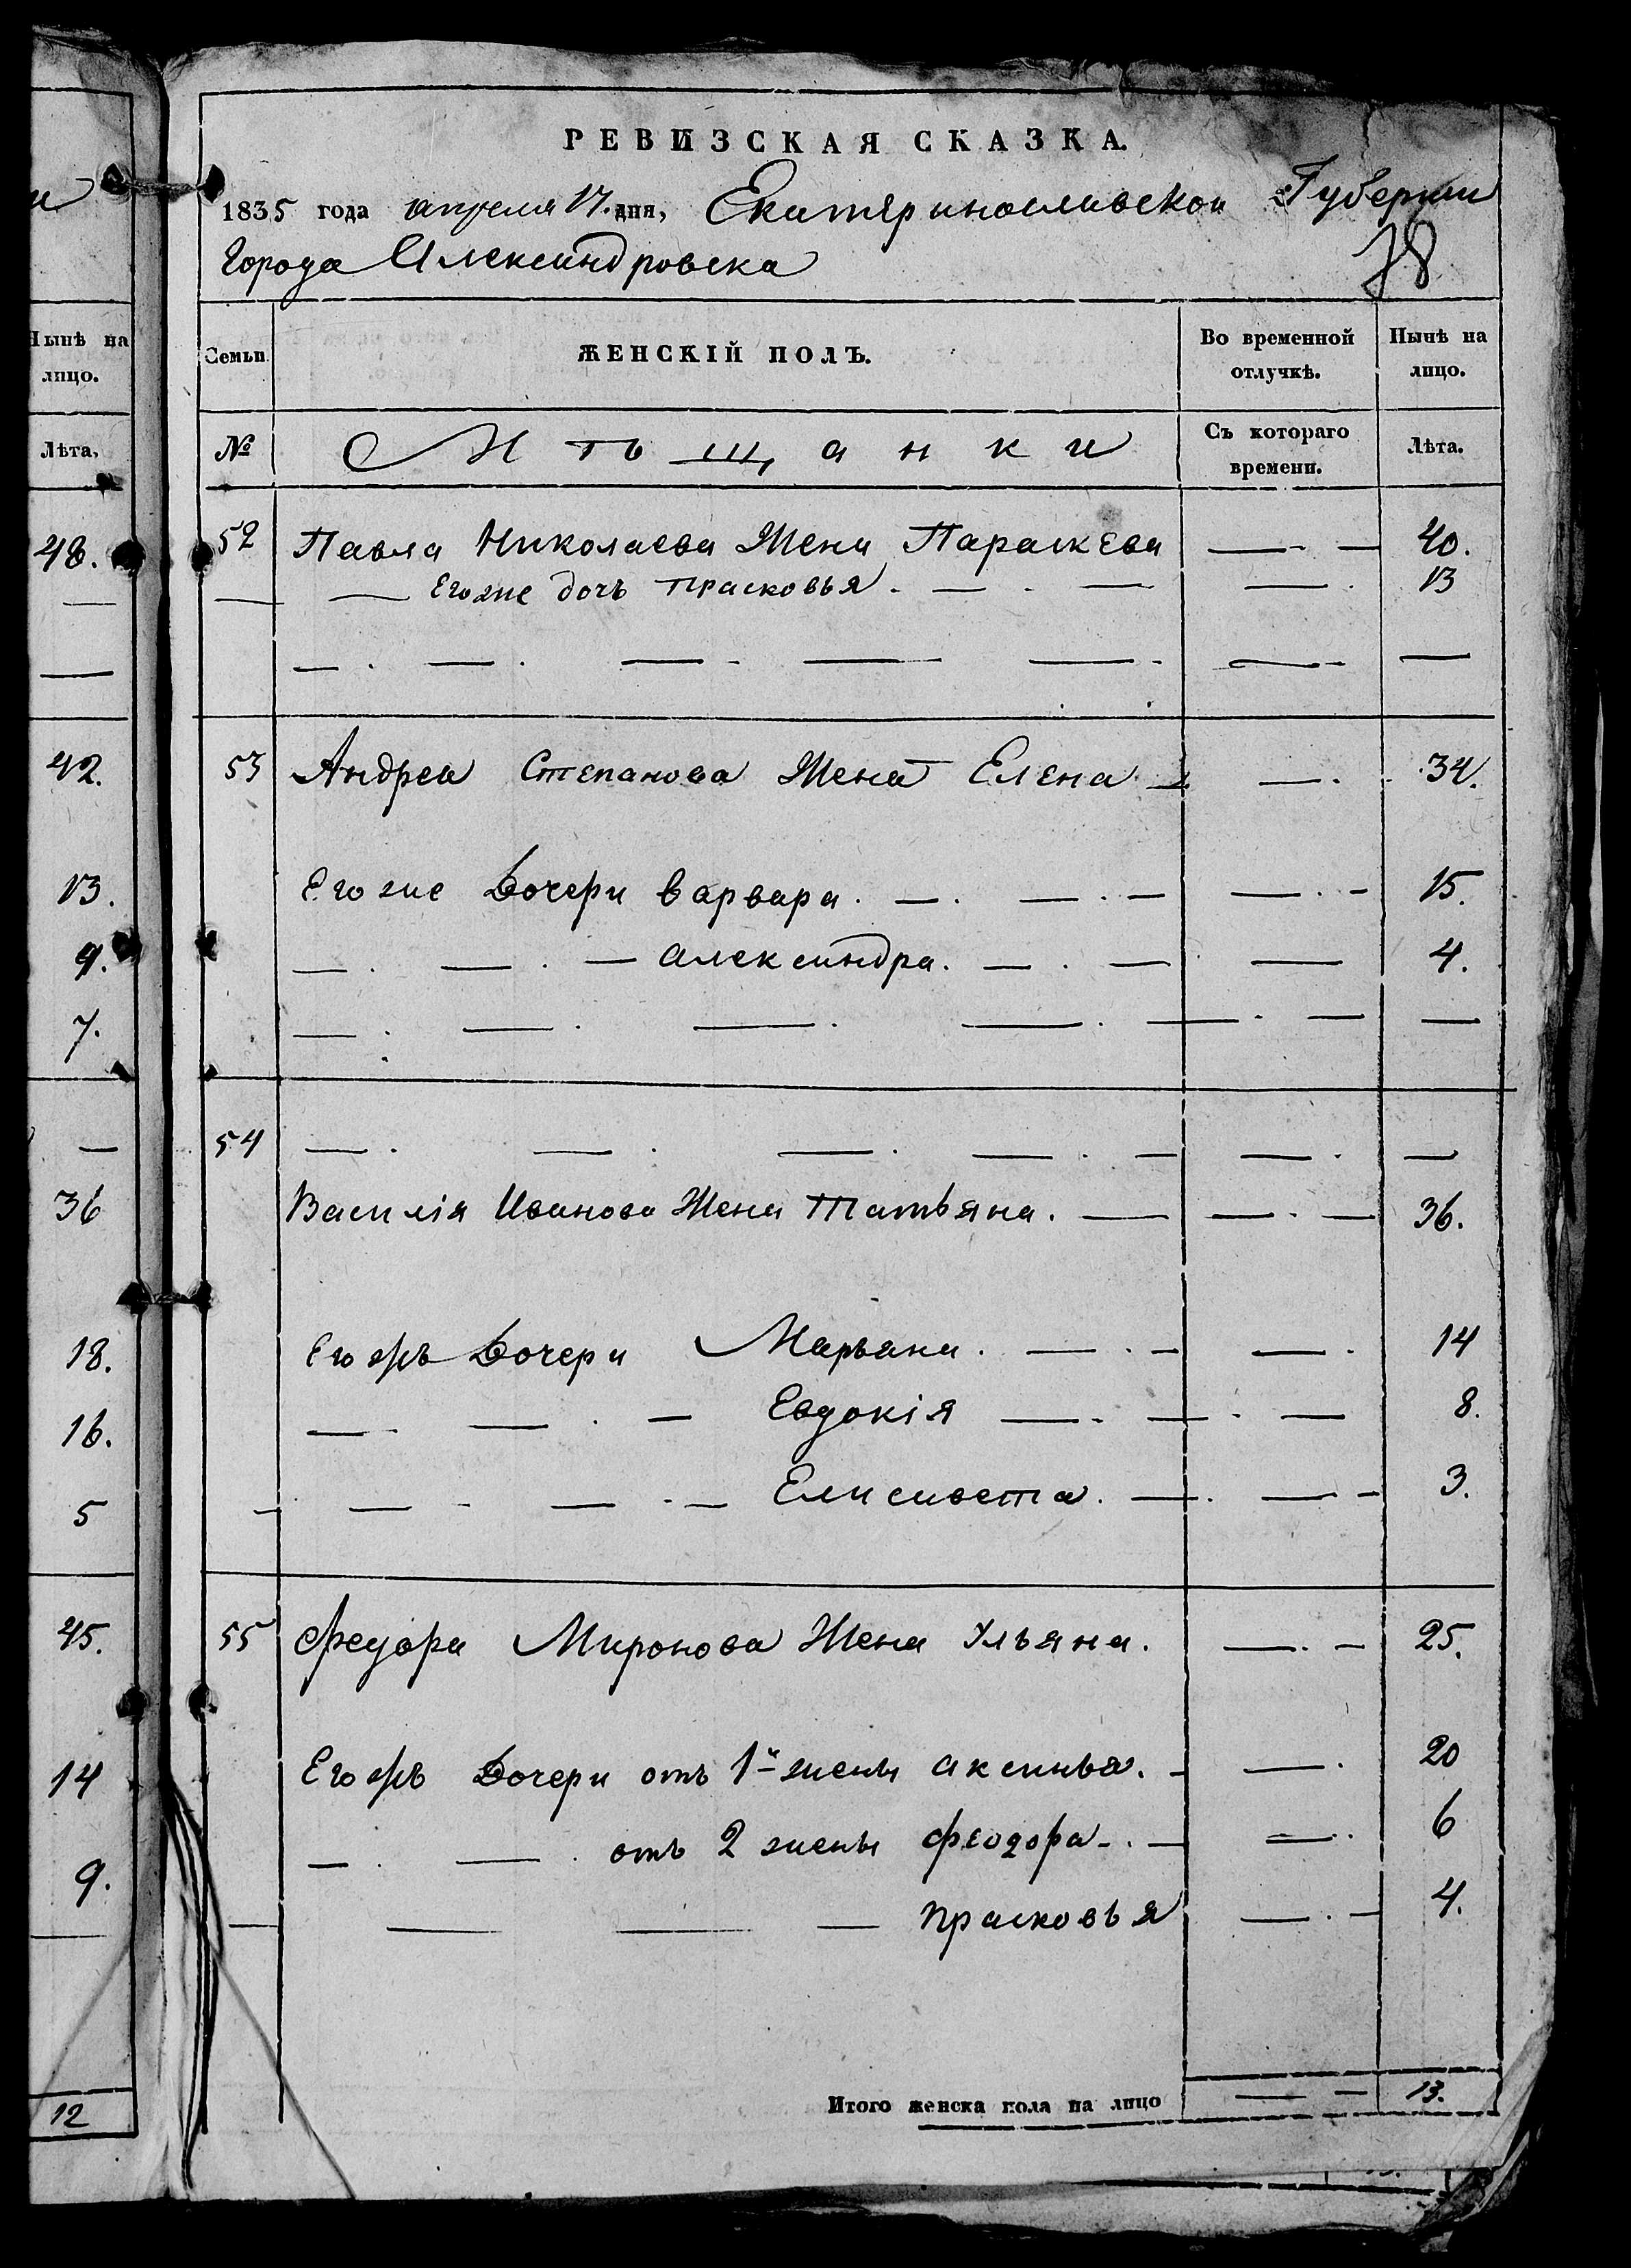 РЕВИЗСКАЯ СКАЗКА.
1835 года апреля 17. дня, Екатеринославской Губернии
Города Александровска
78
Нынѣ на лицо.
Лѣта,
48.
42.
13.
9.
7.
36
18.
16.
5
45.
14
9.
12
Семьи
ЖЕНСКІЙ ПОЛЪ.
Во временной отлучкѣ.
Нынѣ на лицо.
№
Мѣщанки
Съ котораго времени.
Лѣта.
52 Павла Николаева Жена Параскева 40.
Егоже дочь Прасковья. 13
53 Андрея Степанова Жена Елена 34.
Егоже Дочери Варвара. 15.
александра. 4.
54
Василія Иванова Жена Татьяна. 36.
Егожъ Дочери Марьяна. 14
Евдокія 8.
Елисавета. 3.
55 Федора Миронова Жена Ульяна. 25.
Егожъ Дочери отъ 1й жены аксинья. 20
отъ 2 жены феодора 6
прасковья 4.
Итого женска пола на лицо 13.